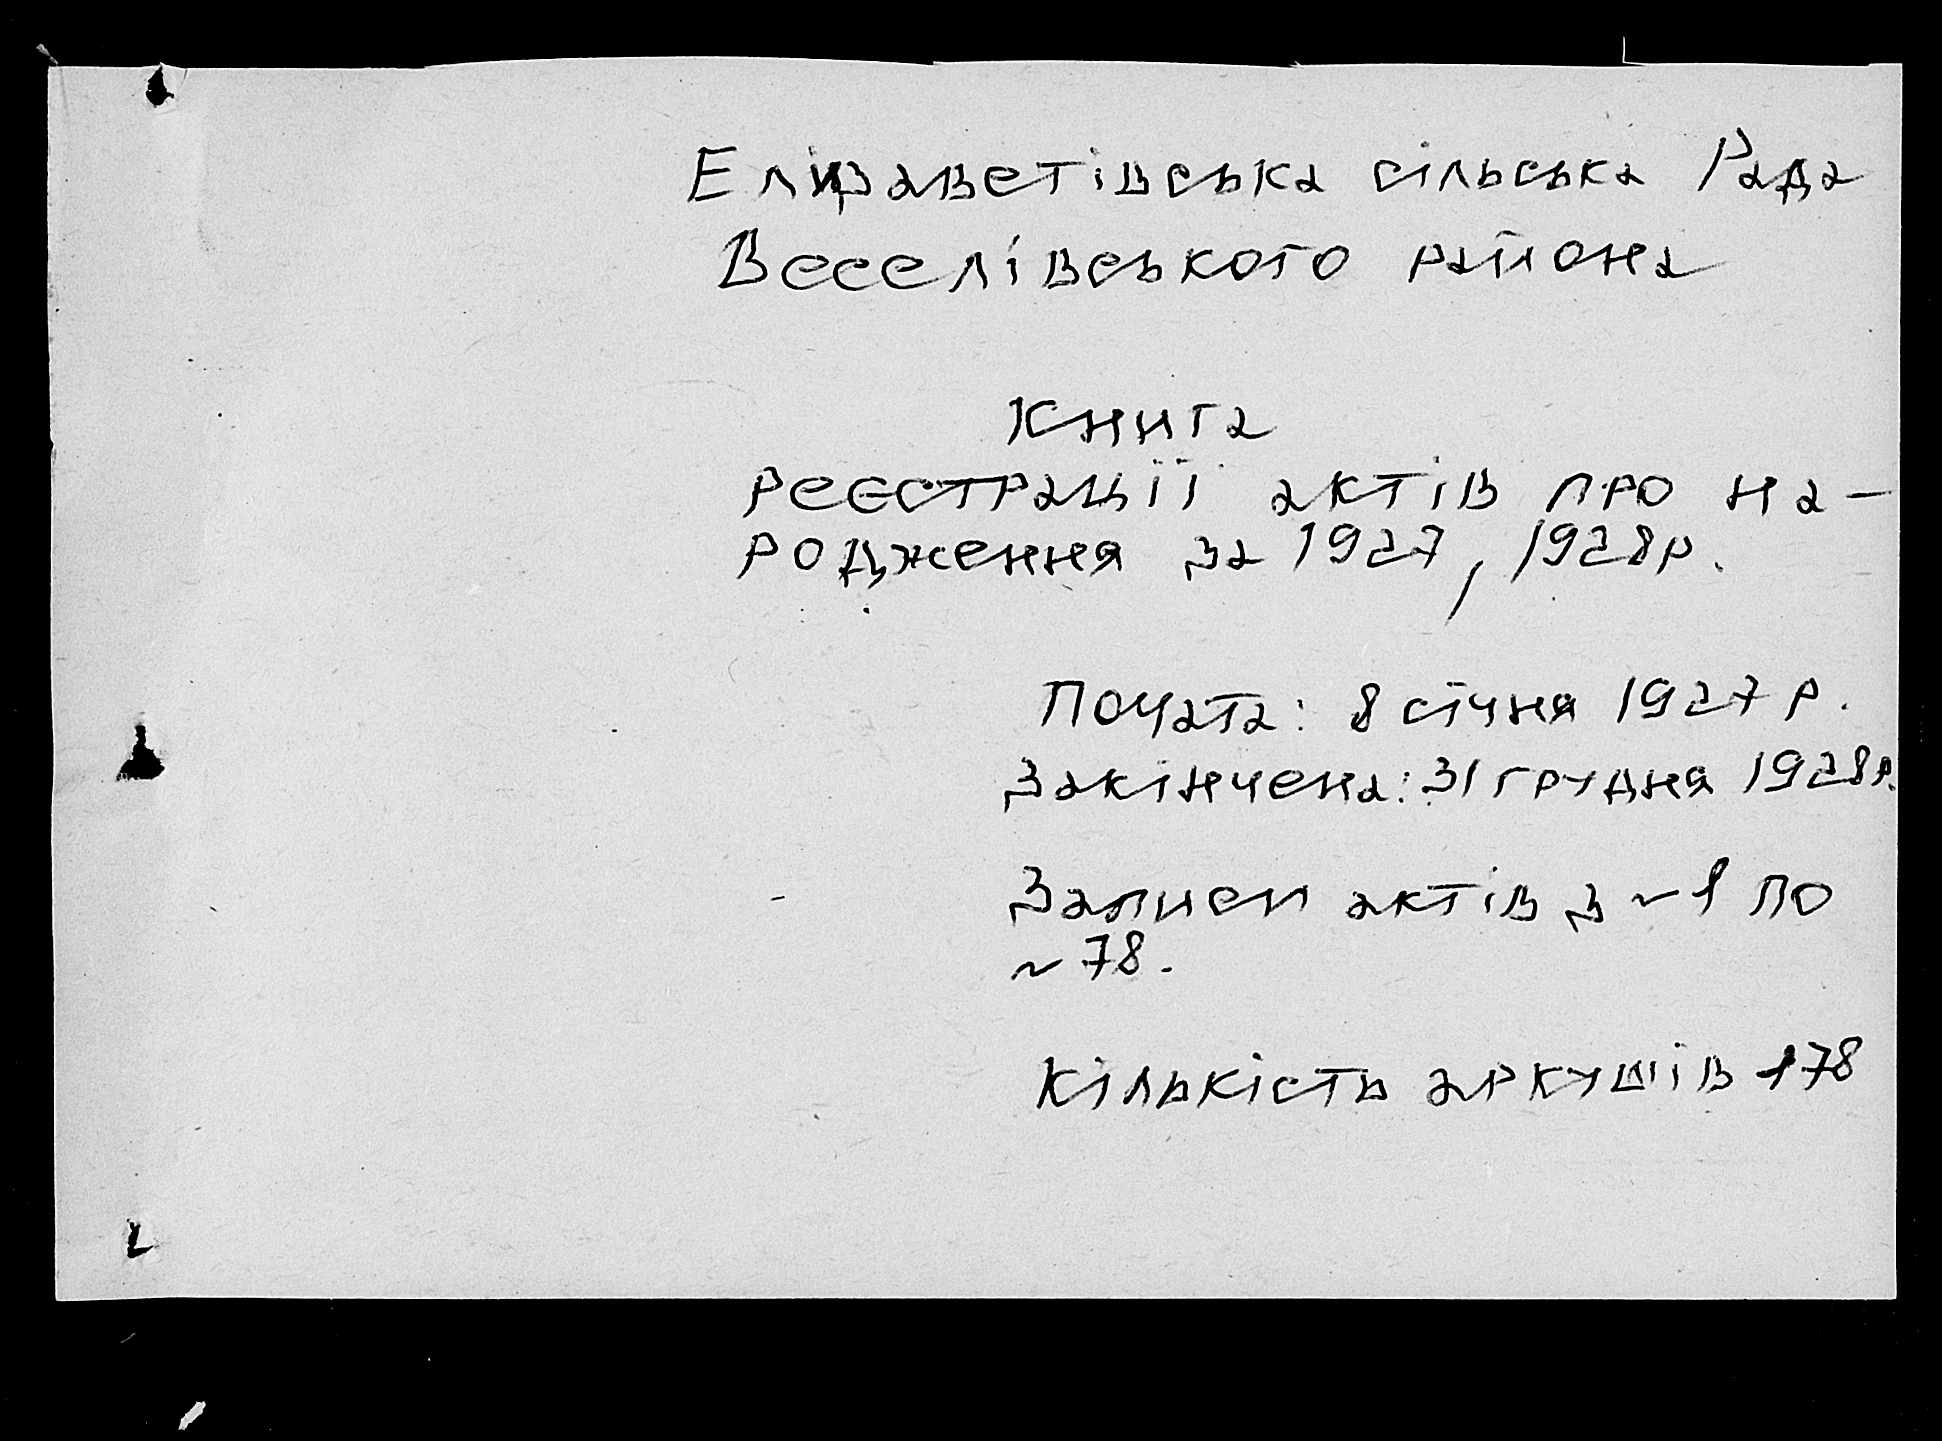 Елизаветівська сільська Рада
Веселівського района
Книга
реєстрації актів про на-
родження за 1927, 1928р.
Почата: 8 січня 1927 р.
Закінчена: 31 грудня 1928р.
Записи актів з ~ 1 по
~ 78.
Кількість аркушів 178